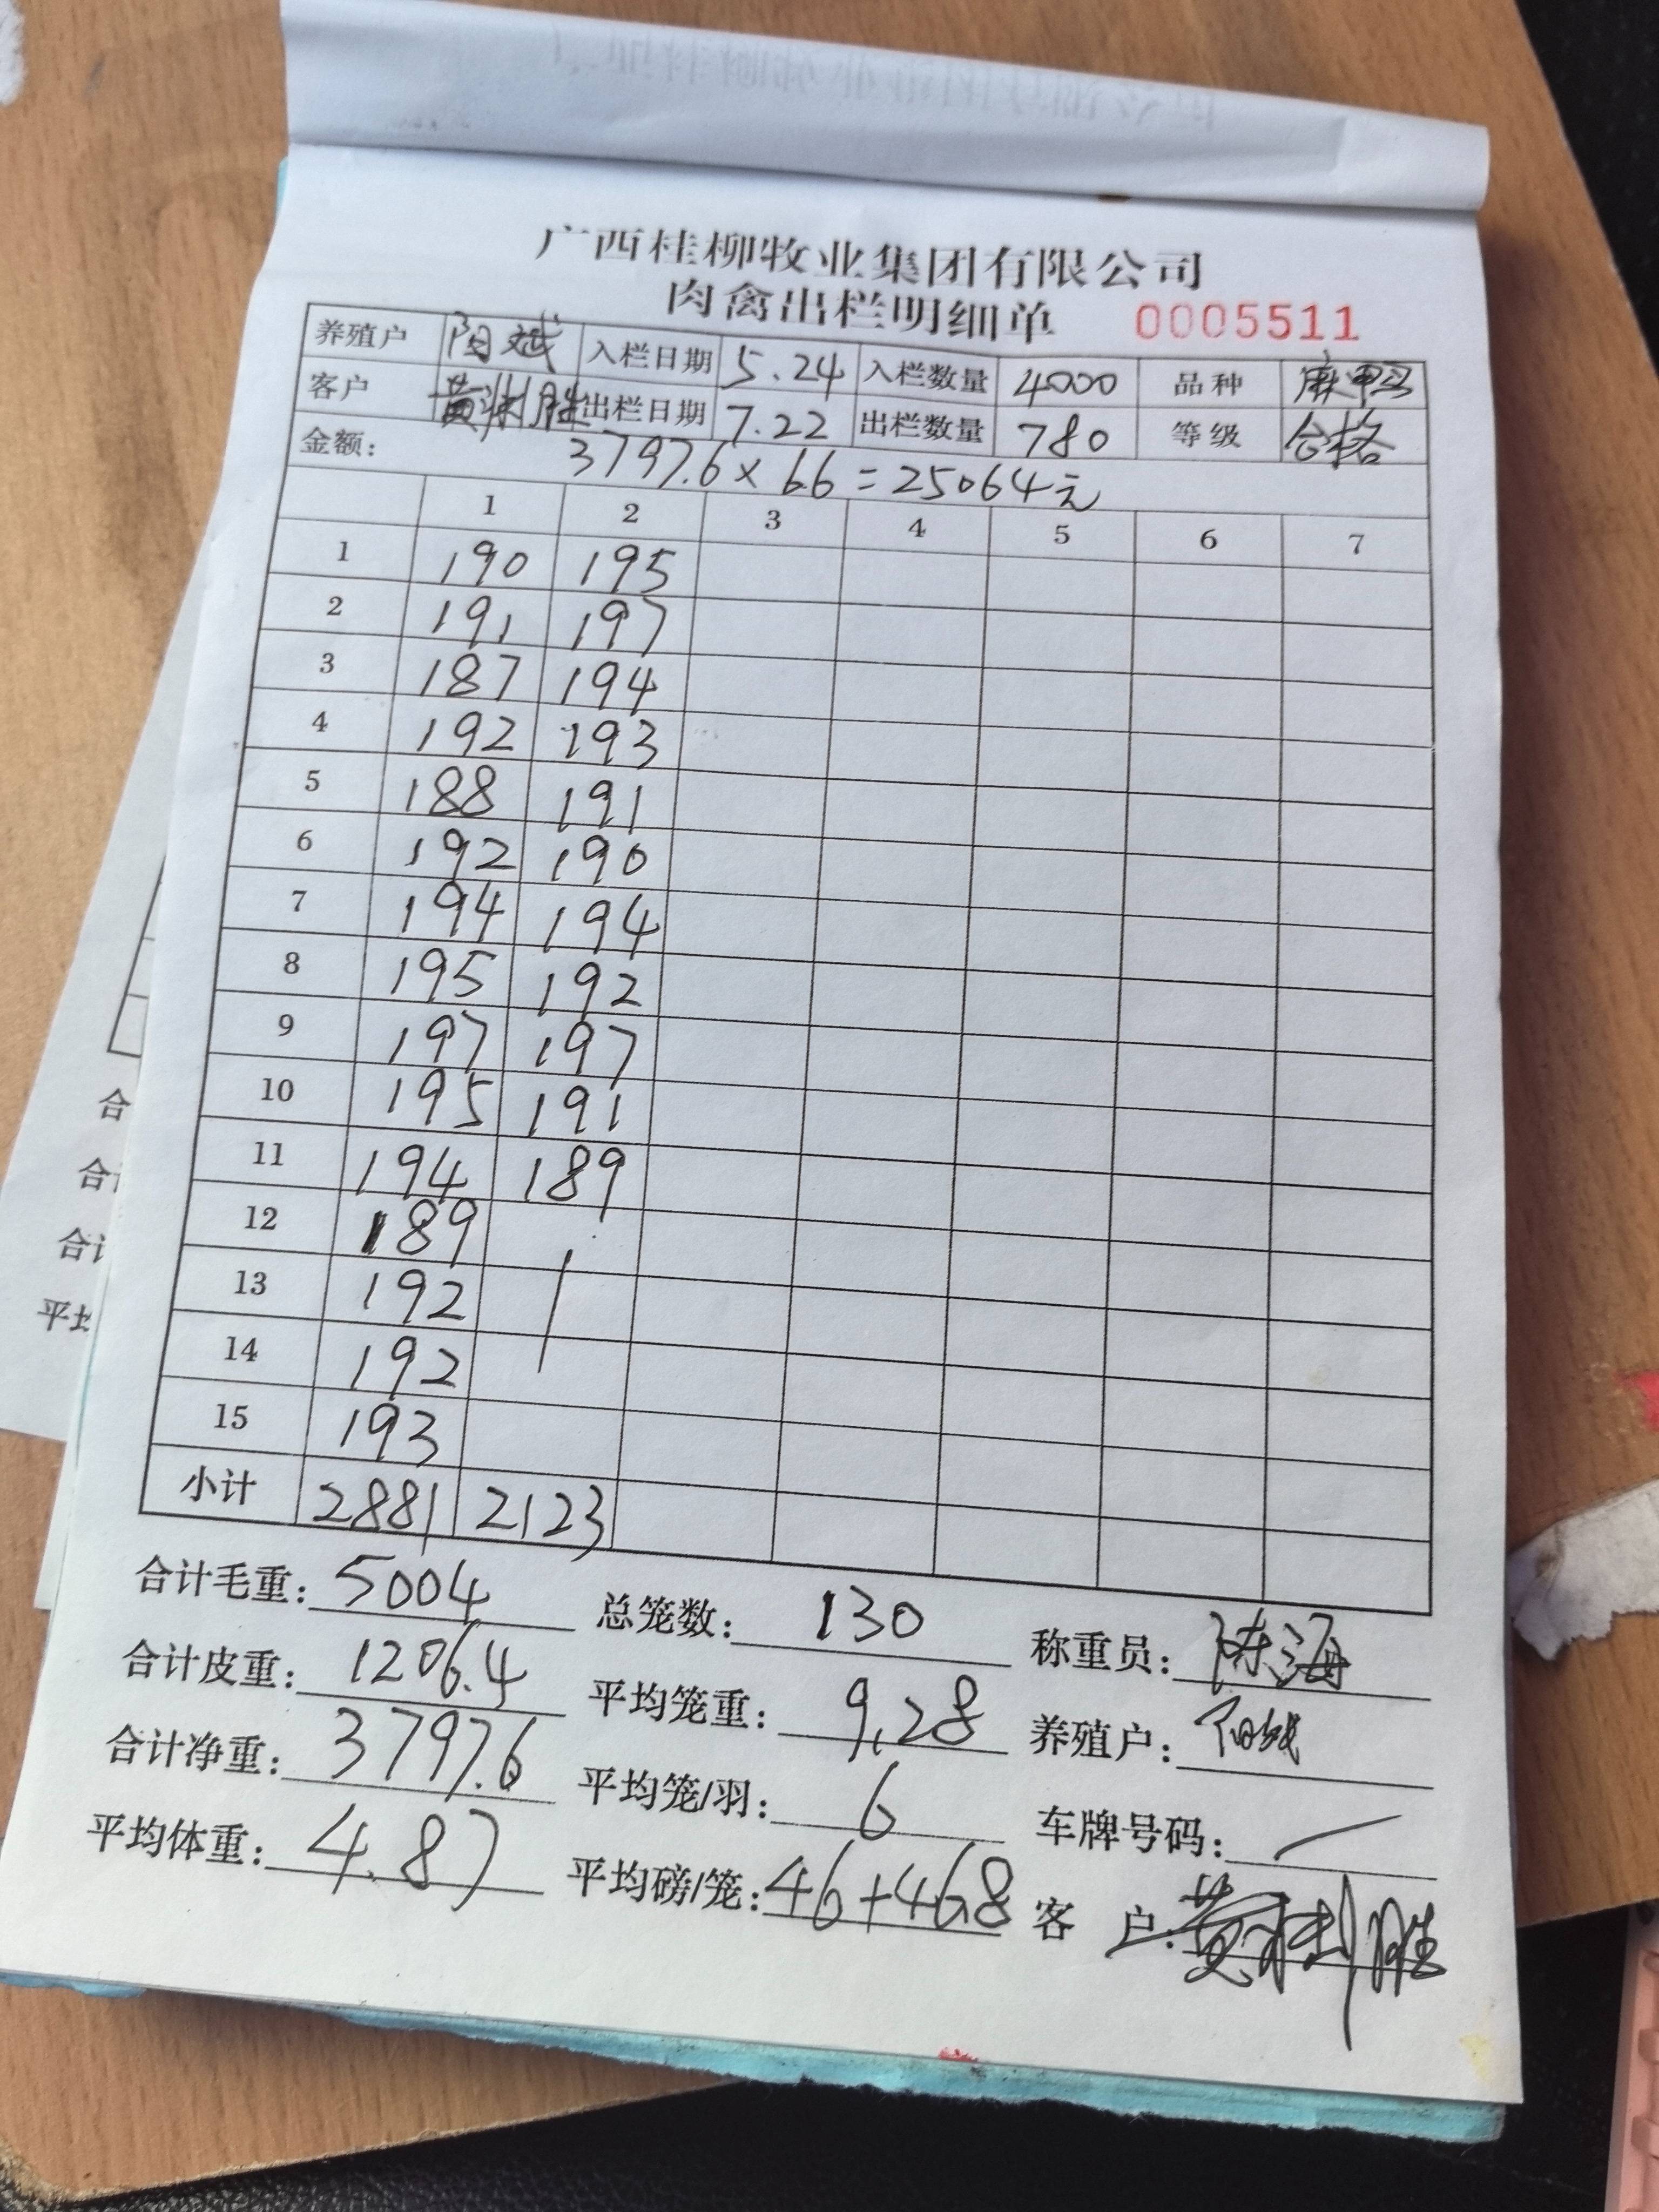 广西桂柳牧业集团有限公司
肉禽出栏明细单 0005511
养殖户 阳斌 入栏日期 5.24 入栏数量 4000 品种 麻鸭
客户 出栏日期 7.22 出栏数量 780 等级 合格
金额: 3797.6×6.6=25064元
1 2 3 4 5 6 7
1 190 195
2 191 197
3 187 194
4 192 193
5 188 191
6 192 190
7 194 194
8 195 192
9 197 197
10 195 191
11 194 189
12 189
13 192
14 192
15 193
小计 2881 2123
合计毛重: 5004 总笼数: 130 称重员: 陈海
合计皮重: 1206.4 平均笼重: 9.28 养殖户: 阳斌
合计净重: 3797.6 平均笼/羽: 6 车牌号码: 一
平均体重: 4.87 平均磅/笼: 46+468 客户:
合
合计
合计
平均